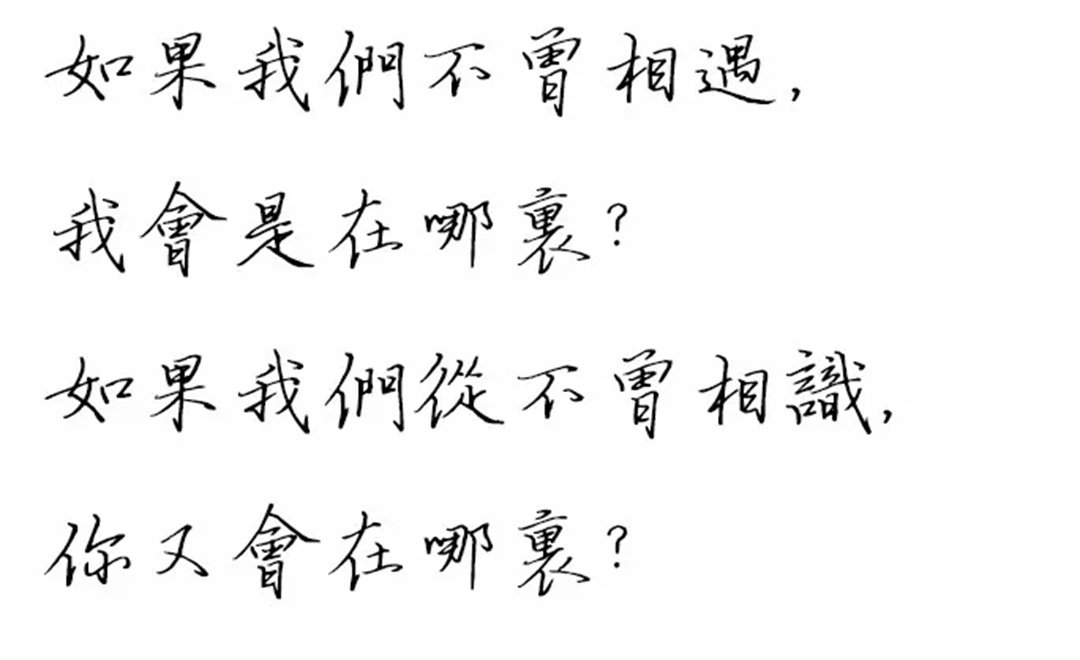 如果我們不曾相遇,
我會是在哪裏?
如果我們從不曾相識,
你又會在哪裏?